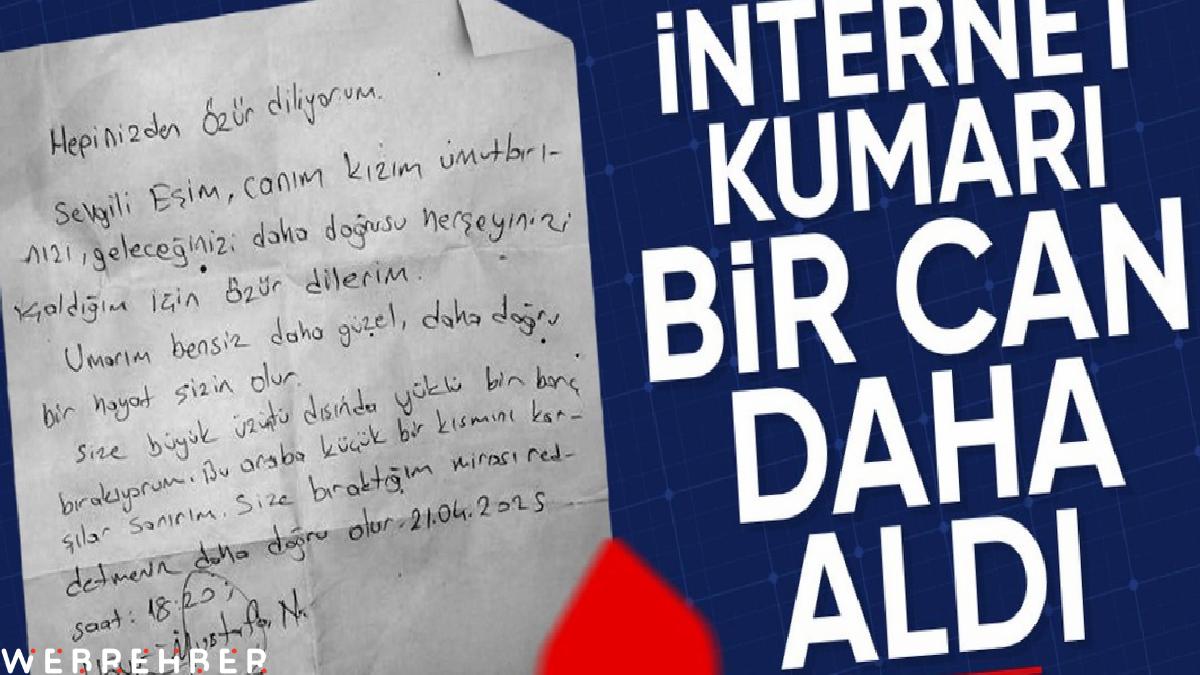 Hepinizden Özür diliyorum.
Sevgili Eşim, canım kızım ümutları-
nızı, geleceğinizi daha doğrusu herşeyinizi
çaldığım için Özür dilerim.
Umarım bensiz daha güzel, daha doğru
bir hayat sizin olur.
Size büyük üzüntü dışında yüklü bir borç
bırakıyorum. Bu araba küçük bir kısmını kar-
şılar sanırım. Size bıraktığım mirası red-
detmeniz daha doğru olur. 21.04.2025
saat: 18:20
Mustafa N.
WEBREHBER
İNTERNET
KUMARI
BİR CAN
DAHA
ALDI